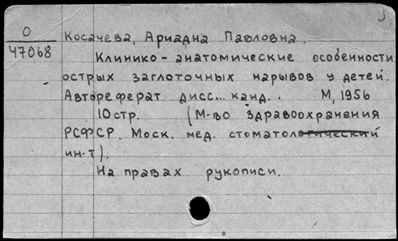 О
47068
Косачева, Ариадна Павловна.
Клинико-анатомические особенности
острых заглоточных нарывов у детей.
Автореферат дисс... канд.. М, 1956
10стр. (М-во здравоохранения
РСФСР. Моск. мед. стоматологический
ин-т).
На правах рукописи.